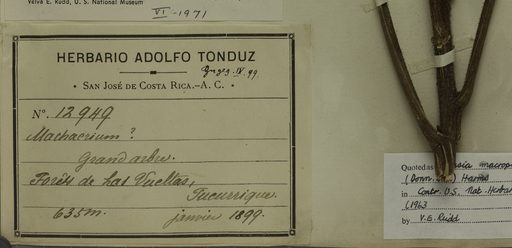 Velva E. Rudd, U. S. National Museum
VI-1971
HERBARIO ADOLFO TONDUZ
SAN JOSÉ DE COSTA RICA.-A. C.
No. 12949
Machaerium?
Grand arbre.
Forêts de Las Vueltas,
Tucurrique.
635m. janvier 1899.
Quoted as macrop
(Donn. ) Harms
in Contr. U.S. Nat. Herbar
(1963
by V.E. Rudd